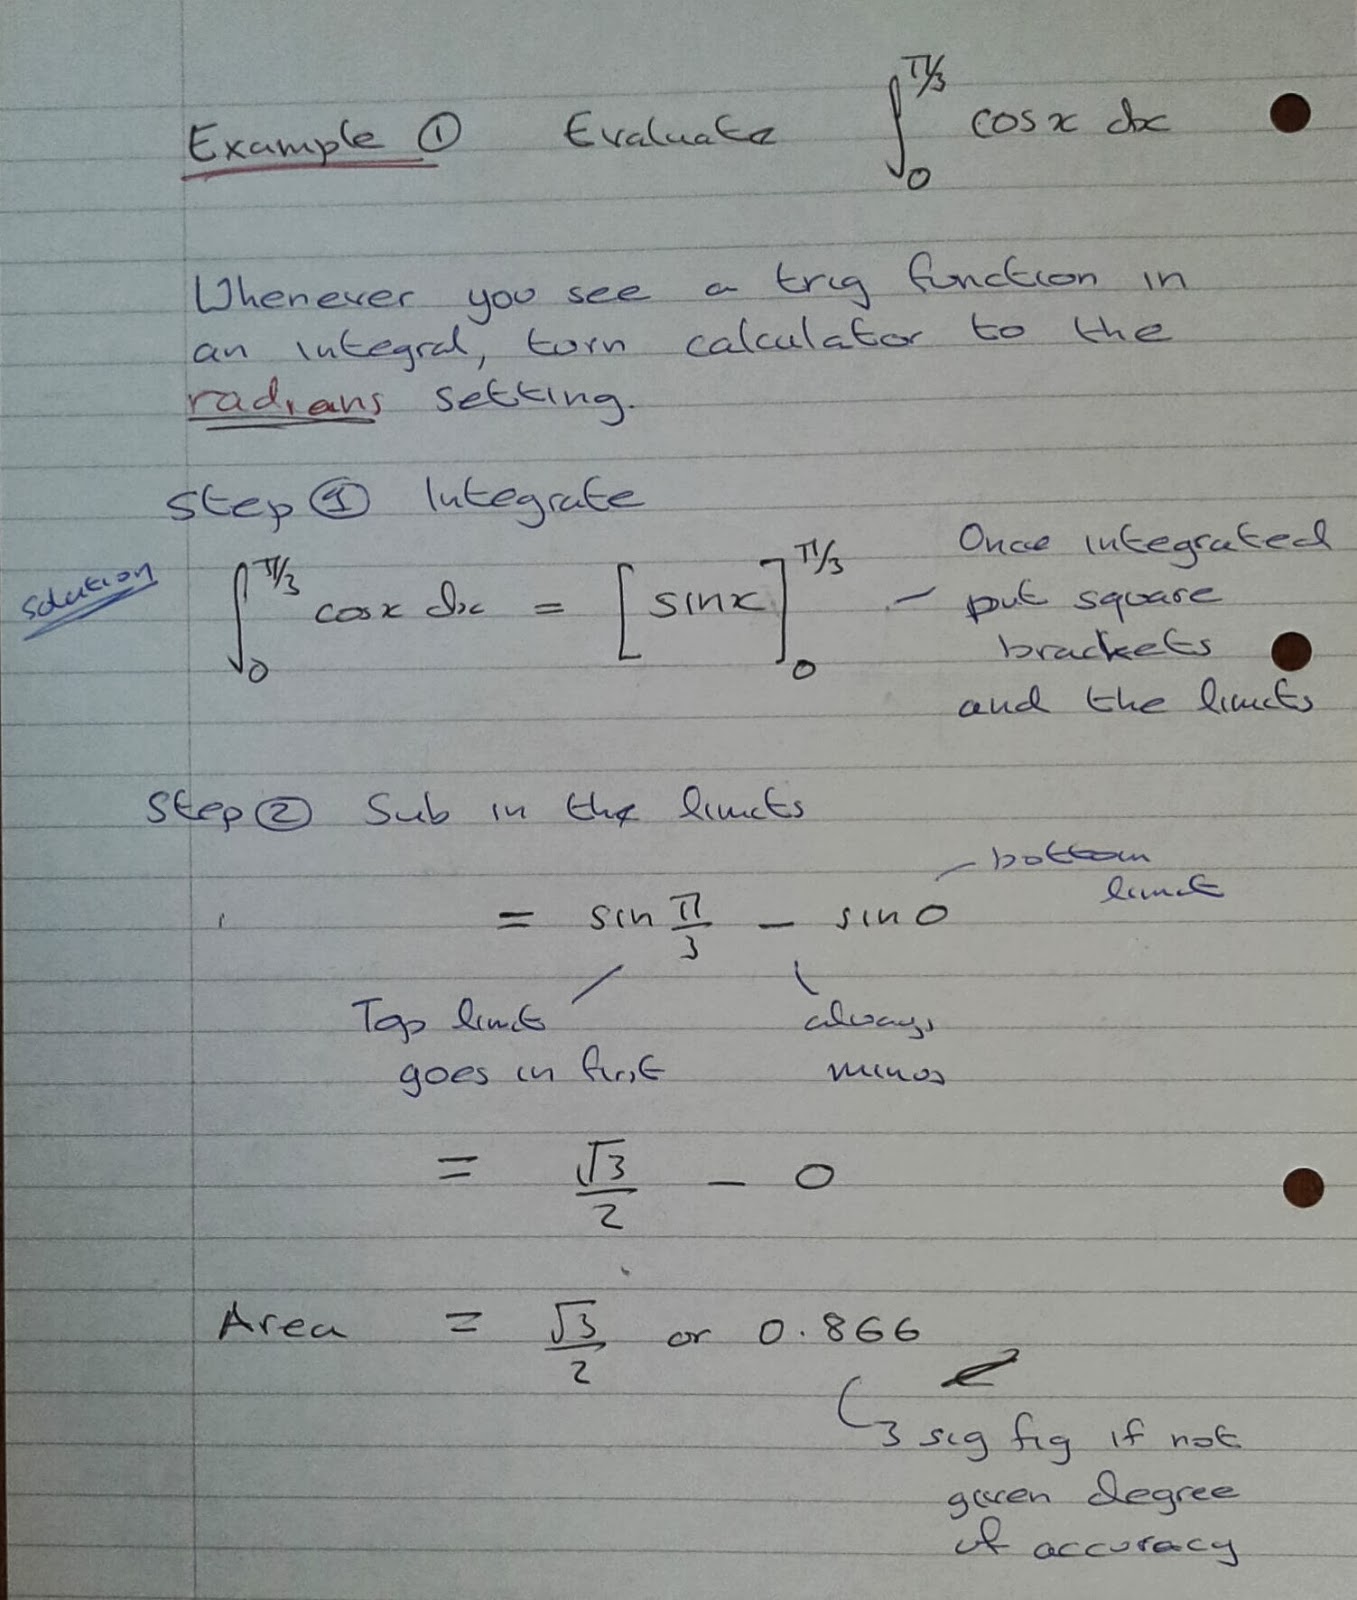 Example ① Evaluate ∫₀^π/3 cosx dx
Whenever you see a trig function in
an integral, turn calculator to the
radians setting.
Step ① Integrate
Solution
∫₀^π/3 cosx dx = [sinx]₀^π/3 – Once integrated
put square
brackets
and the limits
Step ② Sub in the limits
bottom
limit
= sin π/3 – sin 0
Top limit
goes in first
always
minus
= √3/2 – 0
Area = √3/2 or 0.866
3 sig fig if not
given degree
of accuracy